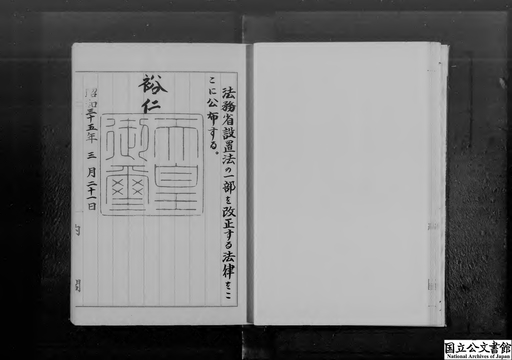 法務省設置法の一部を改正する法律をこ
こに公布する。
裕仁
天皇
御璽
昭和三十五年三月三十一日
内閣
国立公文書館
National Archives of Japan